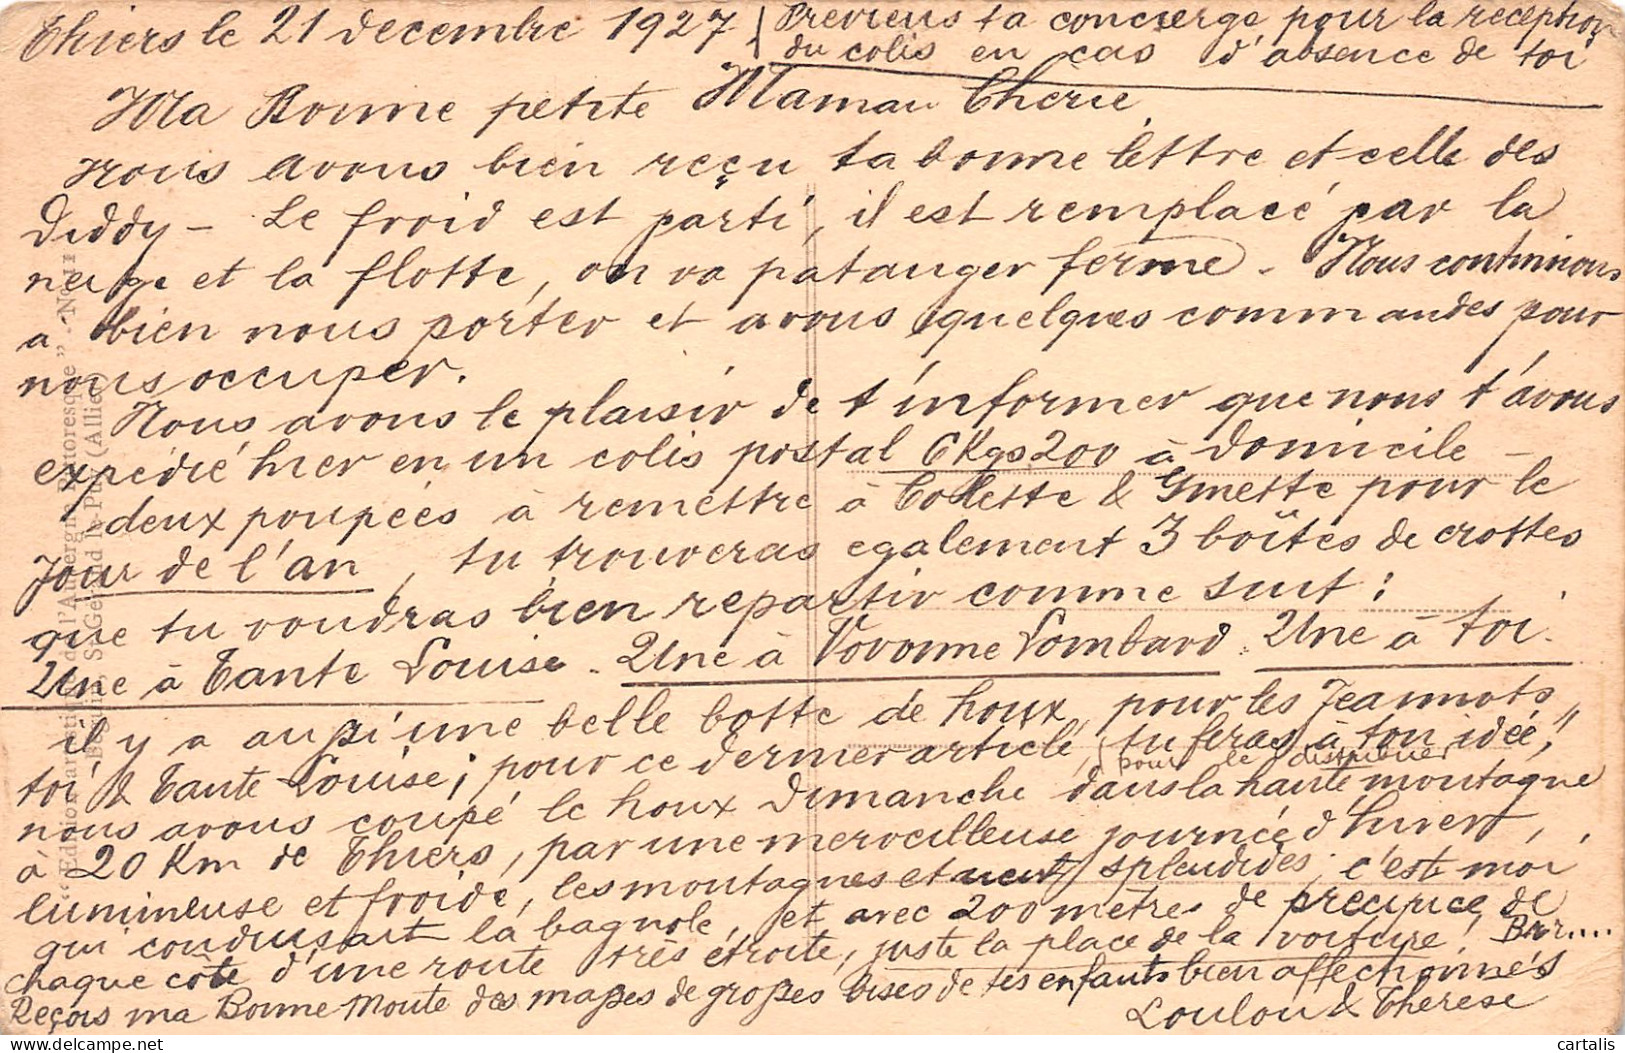 Thiers le 21 decembre 1927
Previens ta concierge pour la reception
du colis en cas d'absence de toi
Ma Bonne petite Maman Cherie
Nous avons bien reçu ta bonne lettre et celle des
Deddy - Le froid est parti, il est remplacé par la
neige et la flotte, on va patauger ferme - Nous continuons
a bien nous porter et avons quelques commandes pour
nous occuper.
Nous avons le plaisir de t'informer que nous t'avons
expédié hier en un colis postal 6Kgs200 à domicile -
deux poupées à remettre à Colette & Ginette pour le
Jour de l'an, tu trouveras egalement 3 boîtes de crottes
que tu voudras bien repartir comme suit :
Une à Tante Louise - Une à Vovonne Lombard. Une à toi.
il y a aussi une belle botte de houx, pour les Jeannots,
toi & Tante Louise ; pour ce dernier article, tu feras à ton idée !!
pour le distribuer
nous avons coupé le houx Dimanche dans la haute montagne
à 20 Km de Thiers, par une merveilleuse journée d'hiver,
lumineuse et froide, les montagnes etaient splendides, c'est moi
qui conduisait la bagnole, et avec 200 mètres de precipice de
chaque côte d'une route très étroite, juste la place de la voiture ! Brr....
Reçois ma Bonne Moute des masses de grosses bises de tes enfants bien affectionnés
Loulou & Therese
"Edition artistique de l'Auvergne Pittoresque" - No
St Gerand le Puy (Allier)
cartalis